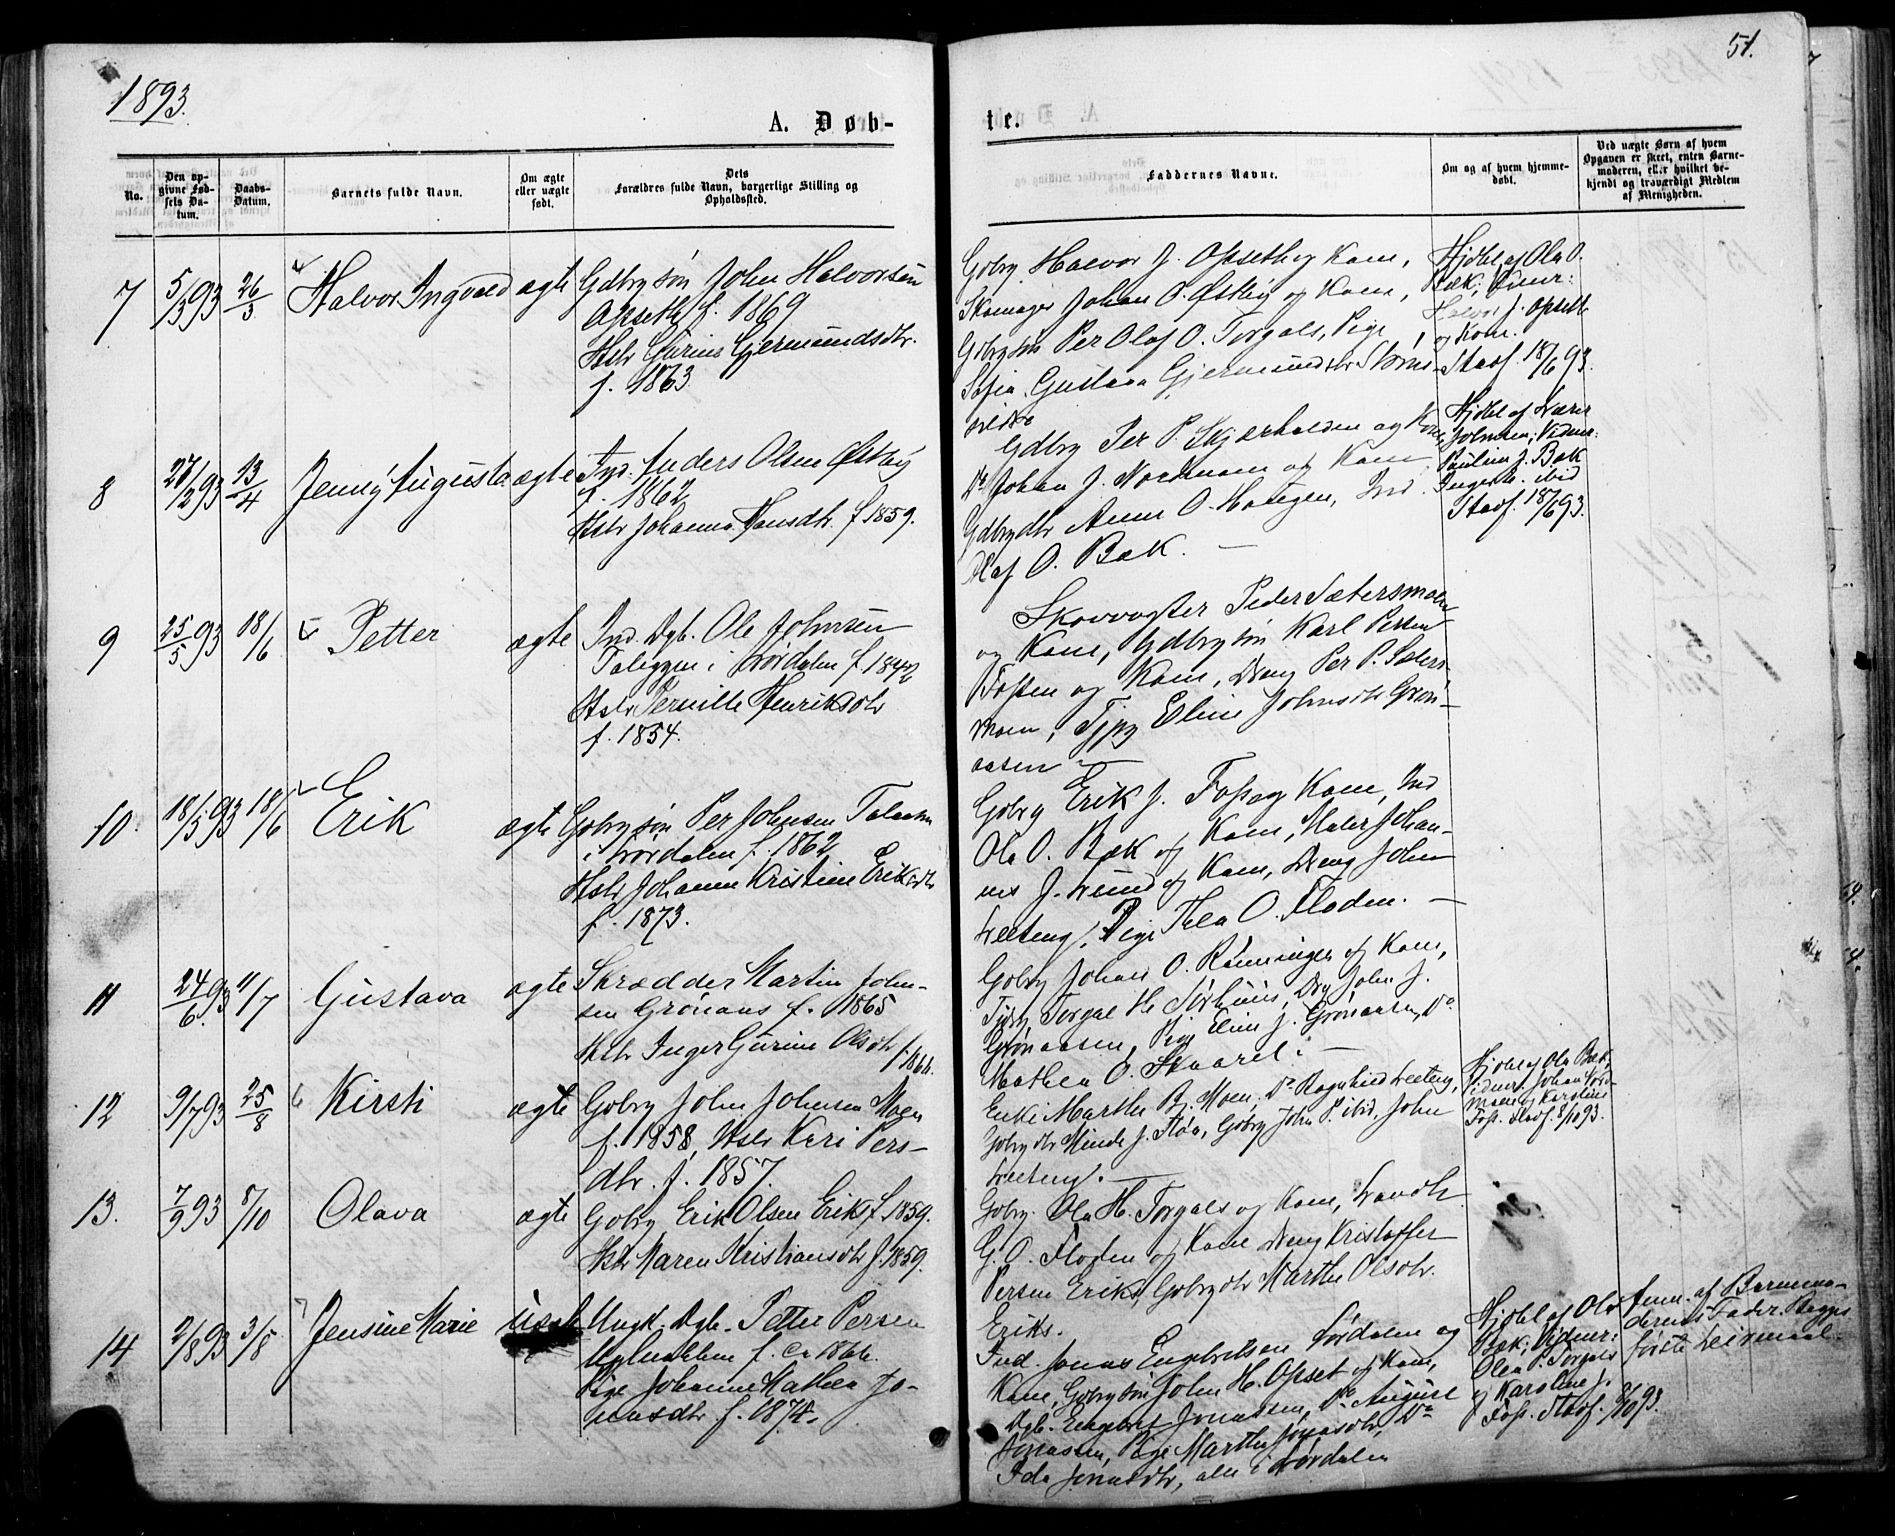 1893.
51.
A. Døb-
te.
No.
Den op-
givne Fød-
sels Da-
tum.
Daabs-
Datum.
Barnets fulde Navn.
Om ægte
eller uægte
født.
Dets
Forældres fulde Navn, borgerlige Stilling og
Opholdssted.
Faddernes Navne.
Om og af hvem hjemme-
døbt.
Ved uægte Børn af hvem
Opgaven er skeet, enten Barne-
moderen, eller hvilket be-
kjendt og troværdigt Medlem
af Menigheden.
7
5/3 93
26/3
Halvor Ingvald
ægte
Gdbrysøn John Halvorsen
Opseth f. 1869
Gjermundsdtr.
f. 1863
Gdbrg Halvor J. Opseth og Kone,
Skomager Johan O. Østby og Kone,
Gdbrgsøn Per Olaf O. Torgals, Pige
Sofia Gustava Gjermundsdtr
Hjdbt af Ola O.
Bæk; Vidner:
Halvor J. Opseth
og Kone.
Stadf. 18/6 93.
8
13/4
Jenny Augusta
ægte
Ind. Anders Olsen Østby
f. 1862
Hstr Johanna Hansdtr. f 1859.
Gdbrg Per P. Skjærholden og Kone
Do Johan J. Nordmoen og Kone
Gdbrgdtr Anne O. Haugen, Ind.
Olaf O. Bæk. —
Hjdbt af Lærer
Johnsen; Vidner:
Pauline J. Bæk
ibid
Stadf. 18/6 93.
9
25/5 93
18/6
Petter
ægte
Ind. Dgb. Ole Johnsen
i Lørdalen f 1842
Hstr Pernille Henriksdtr
f. 1854.
Skovvogter Peder Sætersmoen
og Kone, Gdbrgsøn Karl Persen
Fossen og Kone, Dreng Per P. Sæters-
moen, Tjpg Eline Johnsdtr Grøn-
aasen —
10.
18/5 93
18/6
Erik
ægte
Gdbrgsøn Per Johnsen
i Lørdalen f. 1862
Hstr Johanne Kristine Eriksdtr
f. 1873.
Gdbrg Erik J. Foss og Kone, Ind
Ola O. Bæk og Kone, Maler Johan-
nes J. Lund og Kone, Dreng John
Leeteng, Pige Thea O. Floden. —
11
24/6 93
11/7
Gustava
ægte
Skrædder Martin John-
sen Grønaas f. 1865
Hstr Inger Gurine Olsdtr
f. 1866.
Gdbrg Johan O. Rønningen og Kone,
Torgal H. Sørhuus, Drg John J.
Grønaasen, Pige Eline J. Grønaasen, Do
Mathea O. Skaaret. —
12
9/7 93
25/8
Kirsti
ægte
Gdbrg John Johnsen Moen
f. 1858, Hstr Kari Pers-
dtr. f. 1857.
Enke Marthe Bj. Moen, Do Ragnhild Leeteng,
Gdbrgdtr Minda J. Fløa, Gdbrg John P. ibid, John
Leeteng. —
Hjdbt af Ola Bæk,
Vidner: Johan Nord-
moen og Karoline
Foss. Stadf. 8/10 93.
13.
7/9 93
8/10
Olava
ægte
Gdbrg Erik Olsen Eriks f. 1859.
Hstr Maren Kristiansdtr f. 1859.
Gdbrg. Ola H. Torgals og Kone, Landh.
G. O. Floden og Kone Dreng Kristoffer
Persen Eriks, Gdbrgdtr Marthe Olsdtr.
Eriks.
14
2/8 93
3/8
Jensine Marie
uægte
Ungk. Dgb. Petter Persen
f. ca 1866.
Pige Johanne Mathea Jo-
nasdtr f. 1874.
Ind. Jonas Engebretsen Lørdalen og
Kone, Gdbrgsøn John H. Opset og Kone,
Dgb. Engebret Jonassen, Do August
Jonassen, Pige Marthe Jonasdtr, Do
Ida Jonasdtr, alle i Lørdalen
Hjdbt af Ola
Bæk; Vidner:
Olea P. Torgals
og Karoline J.
Foss. Stadf. 8/10 93.
Anm. af Barnemo-
derens Fader. Begges
første Leiermaal.